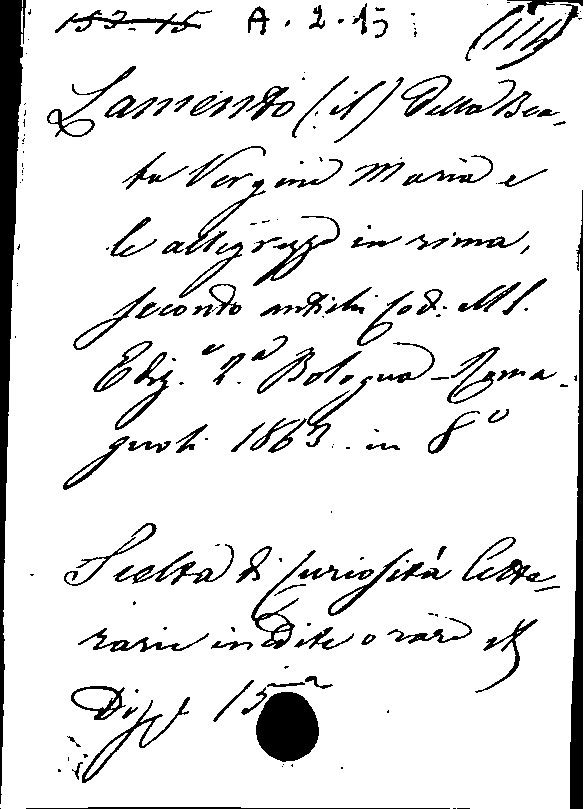 153-15 A. 2. 15 (114)
Lamento (il) della Bea-
ta Vergine Maria e
le allegrezze in rima,
secondo antichi Cod: MS.
Ediz.e 2.a Bologna - Roma-
gnoli 1863 in 8o
Scelta di Curiosità lette-
rarie inedite o rare etc
Disp. 15a